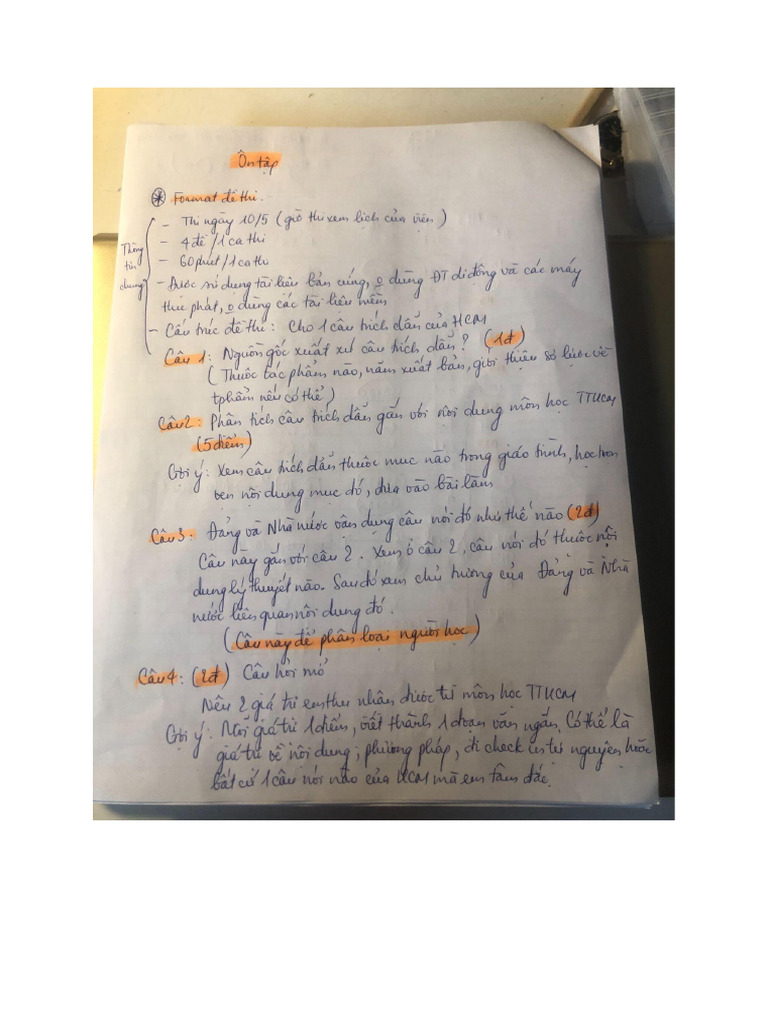 Ôn tập
Format đề thi.
Thông tin chung
- Thi ngày 10/5 (giờ thi xem lịch của viện)
- 4 đề / 1 ca thi
- 60 phút / 1 ca thi
- Được sử dụng tài liệu bản cứng, o dùng ĐT di động và các máy
thu phát, o dùng các tài liệu mềm
- Cấu trúc đề thi: Cho 1 câu trích dẫn của HCM
Câu 1: Nguồn gốc xuất xứ câu trích dẫn? (1đ)
(Thuộc tác phẩm nào, năm xuất bản, giới thiệu sơ lược về
tphẩm nếu có thể)
Câu 2: Phân tích câu trích dẫn gắn với nội dung môn học TTHCM
(5 điểm)
Gợi ý: Xem câu trích dẫn thuộc mục nào trong giáo trình, học trọn
vẹn nội dung mục đó, đưa vào bài làm
Câu 3: Đảng và Nhà nước vận dụng câu nói đó như thế nào (2đ)
Câu này gắn với câu 2. Xem ở câu 2, câu nói đó thuộc nội
dung lý thuyết nào. Sau đó xem chủ trương của Đảng và Nhà
nước liên quan nội dung đó.
(Câu này để phân loại người học)
Câu 4: (2đ) Câu hỏi mở
Nêu 2 giá trị em thu nhận được từ môn học TTHCM
Gợi ý: Mỗi giá trị 1 điểm, viết thành 1 đoạn văn ngắn. Có thể là
giá trị về nội dung, phương pháp, đi check in tự nguyện hoặc
bất cứ 1 câu nói nào của HCM mà em tâm đắc.